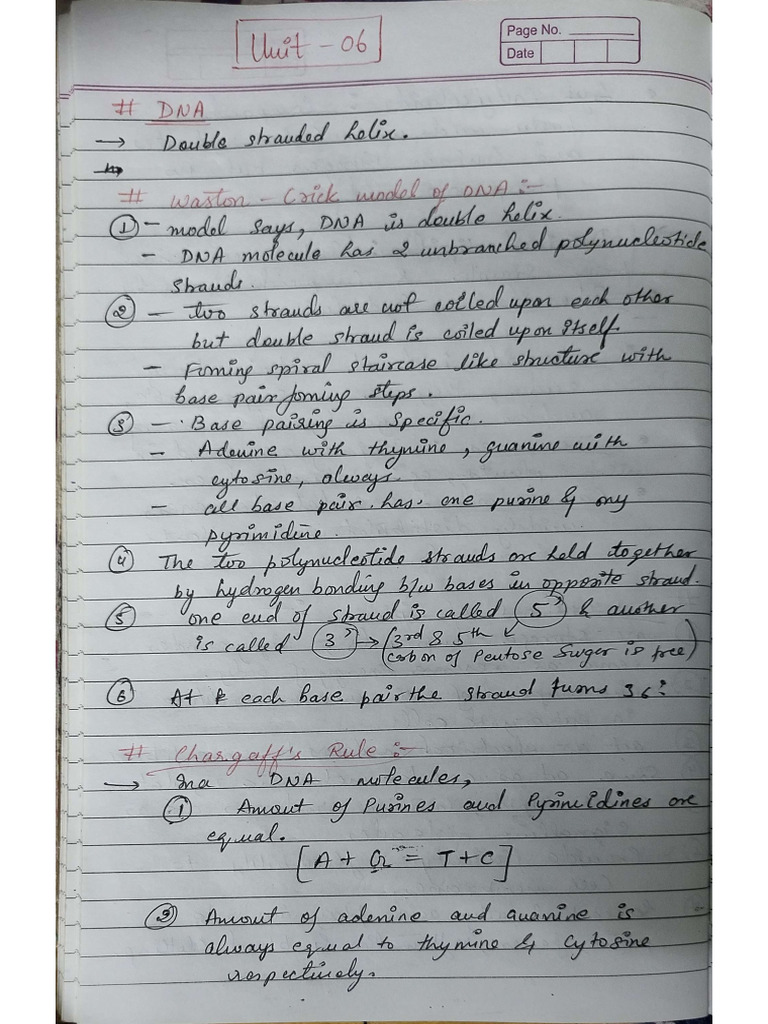 Unit - 06
Page No.
Date
# DNA
→ Double stranded helix.
# Waston - Crick model of DNA :-
① - model says, DNA is double helix.
- DNA molecule has 2 unbranched polynucleotide
strands.
② - two strands are not coiled upon each other
but double strand is coiled upon itself
- Foming spiral staircase like structure with
base pair foming steps.
③ - Base pairing is specific.
- Adenine with thymine, guanine with
cytosine, always.
- all base pair has one purine & ony
pyrimidine.
④ The two polynucleotide strands are held together
by hydrogen bonding b/w bases in opposite strand.
⑤ one end of strand is called 5' & another
is called 3' → (3rd & 5th
carbon of Pentose Suger is free)
⑥ At each base pair the strand turns 36°
# Chargaff's Rule :-
→ In a DNA molecules,
① Amout of Purines and Pyrimidines are
equal.
[A + G = T + C]
② Amount of adenine and guanine is
always equal to thymine & cytosine
respectively.